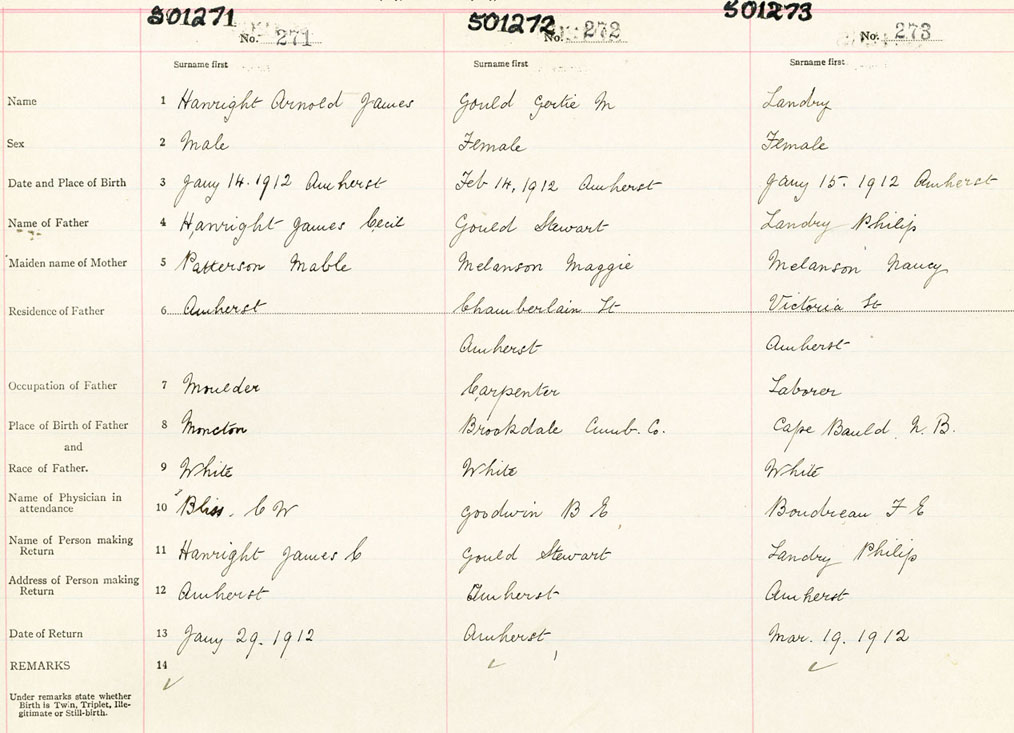 501271 501272 501273
No. 271 No. 272 No. 273
Surname first Surname first Surname first
Name 1 Hanright Arnold James Gould Gertie M Landry
Sex 2 Male Female Female
Date and Place of Birth 3 Jany 14. 1912 Amherst Feb 14, 1912 Amherst Jany 15. 1912 Amherst
Name of Father 4 Hanright James Cecil Gould Stewart Landry Philip
Maiden name of Mother 5 Patterson Mable Melanson Maggie Melanson Nancy
Residence of Father 6 Amherst Chamberlain St Victoria St
Amherst Amherst
Occupation of Father 7 Moulder Carpenter Laborer
Place of Birth of Father 8 Moncton Brookdale Cumb. Co. Cape Bauld N. B.
and
Race of Father. 9 White White White
Name of Physician in
attendance 10 Bliss. C W Goodwin B E Boudreau F E
Name of Person making
Return 11 Hanright James C Gould Stewart Landry Philip
Address of Person making
Return 12 Amherst Amherst Amherst
Date of Return 13 Jany 29. 1912 Amherst Mar. 19. 1912
REMARKS 14
Under remarks state whether
Birth is Twin, Triplet, Ille-
gitimate or Still-birth.